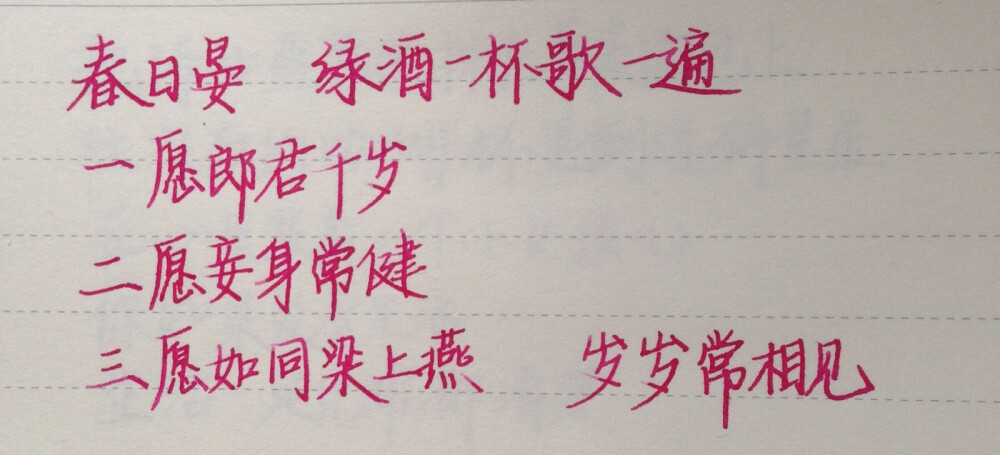 春日晏 绿酒一杯歌一遍
一愿郎君千岁
二愿妾身常健
三愿如同梁上燕 岁岁常相见